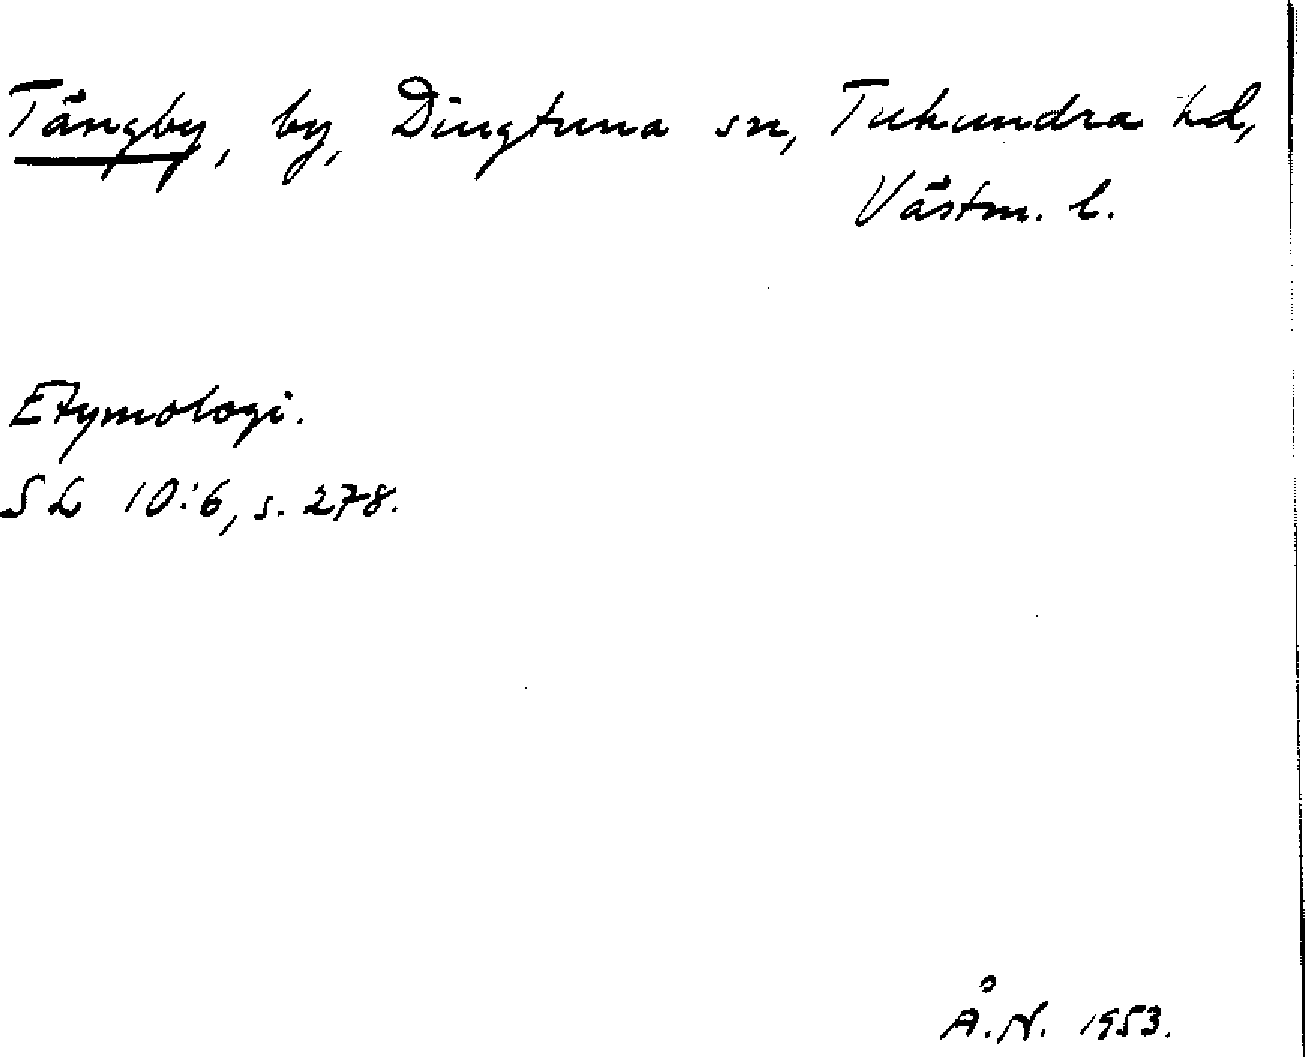 Tängby, by, Dingtuna sn, Tuhundra hd,
Västm. l.
Etymologi.
SL 10:6, s. 278.
Å.N. 1953.